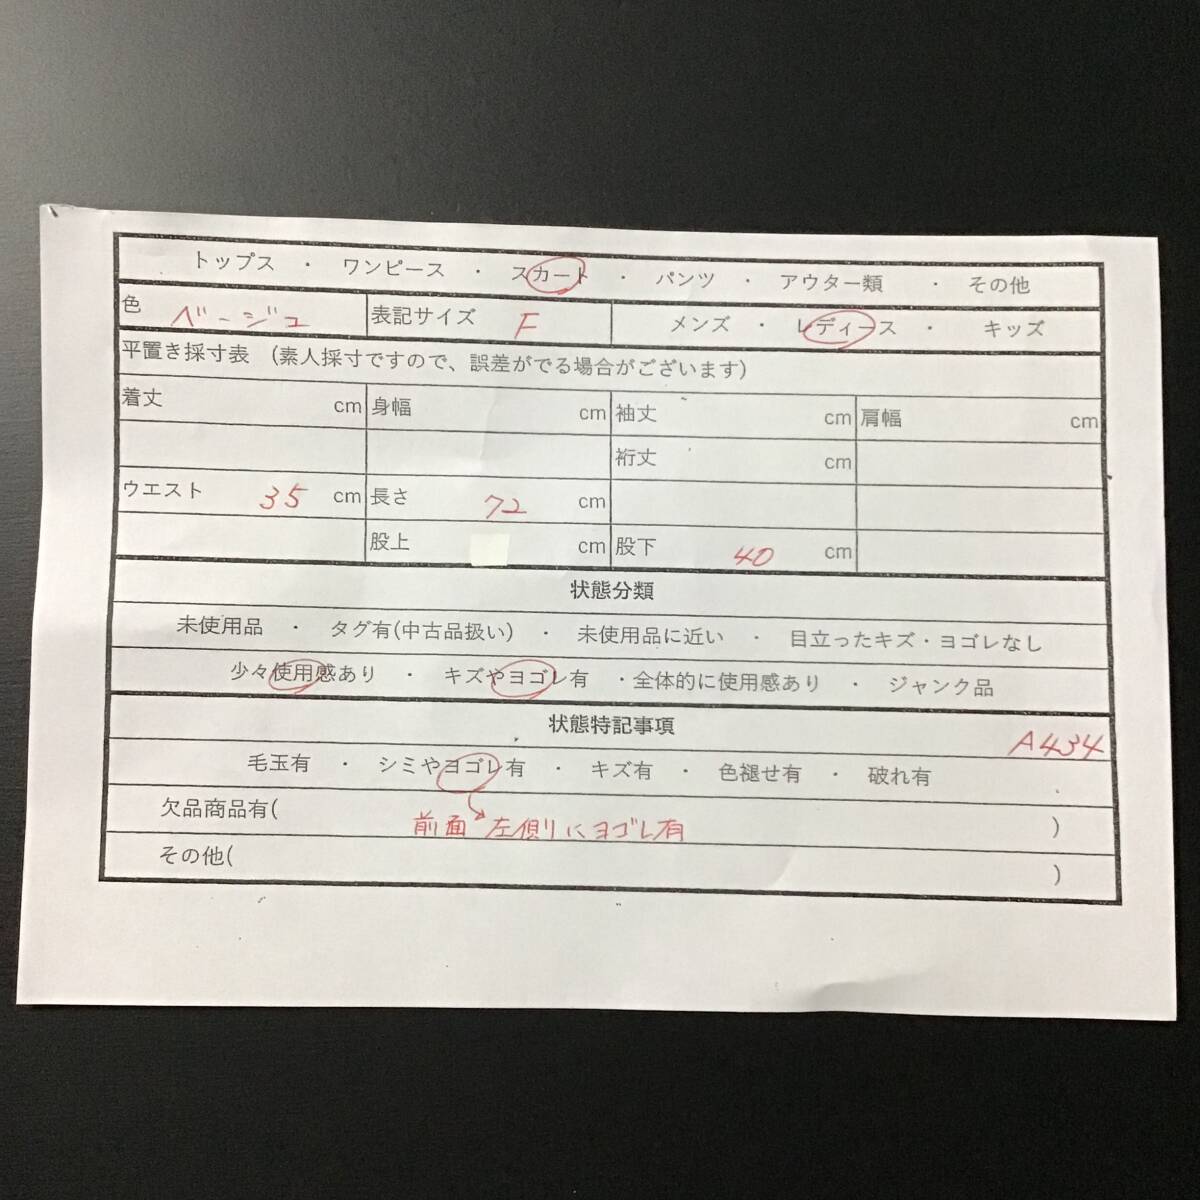 トップス ・ ワンピース ・ スカート ・ パンツ ・ アウター類 ・ その他
色 ベージュ 表記サイズ F メンズ ・ レディース ・ キッズ
平置き採寸表 (素人採寸ですので、誤差がでる場合がございます)
着丈 cm 身幅 cm 袖丈 cm 肩幅 cm
裄丈 cm
ウエスト 35 cm 長さ 72 cm
股上 cm 股下 40 cm
状態分類
未使用品 ・ タグ有(中古品扱い) ・ 未使用品に近い ・ 目立ったキズ・ヨゴレなし
少々使用感あり ・ キズやヨゴレ有 ・全体的に使用感あり ・ ジャンク品
状態特記事項
A434
毛玉有 ・ シミやヨゴレ有 ・ キズ有 ・ 色褪せ有 ・ 破れ有
欠品商品有( 前面 左側にヨゴレ有 )
その他( )